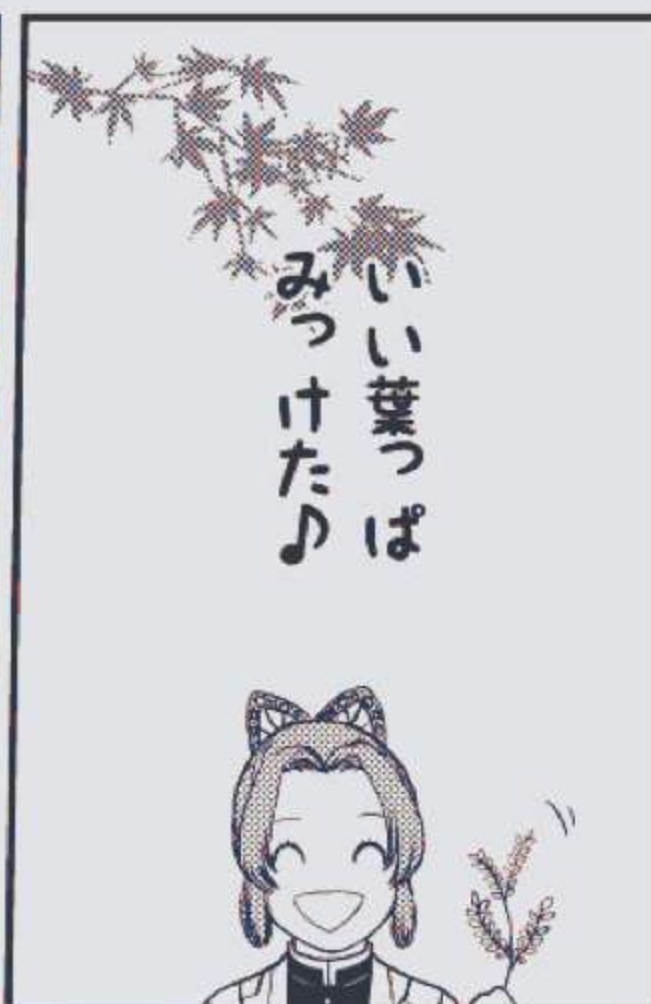 いい葉っぱ
みっけた♪